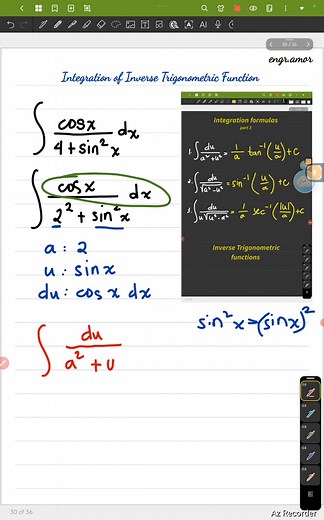 30 / 36
engr.amor
Integration of Inverse Trigonometric Function
∫ cosx / 4 + sin²x dx
Integration formulas
part 1
1. ∫ du / a² + u² = 1/a tan⁻¹(u/a) + C
2. ∫ du / √a² - u² = sin⁻¹(u/a) + C
3. ∫ du / u√u² - a² = 1/a sec⁻¹(|u|/a) + C
Inverse Trigonometric
functions
∫ cosx / 2² + sin²x dx
a : 2
u : sinx
du : cos x dx
sin²x = (sinx)²
∫ du / a² + u
30 of 36
Az Recorder